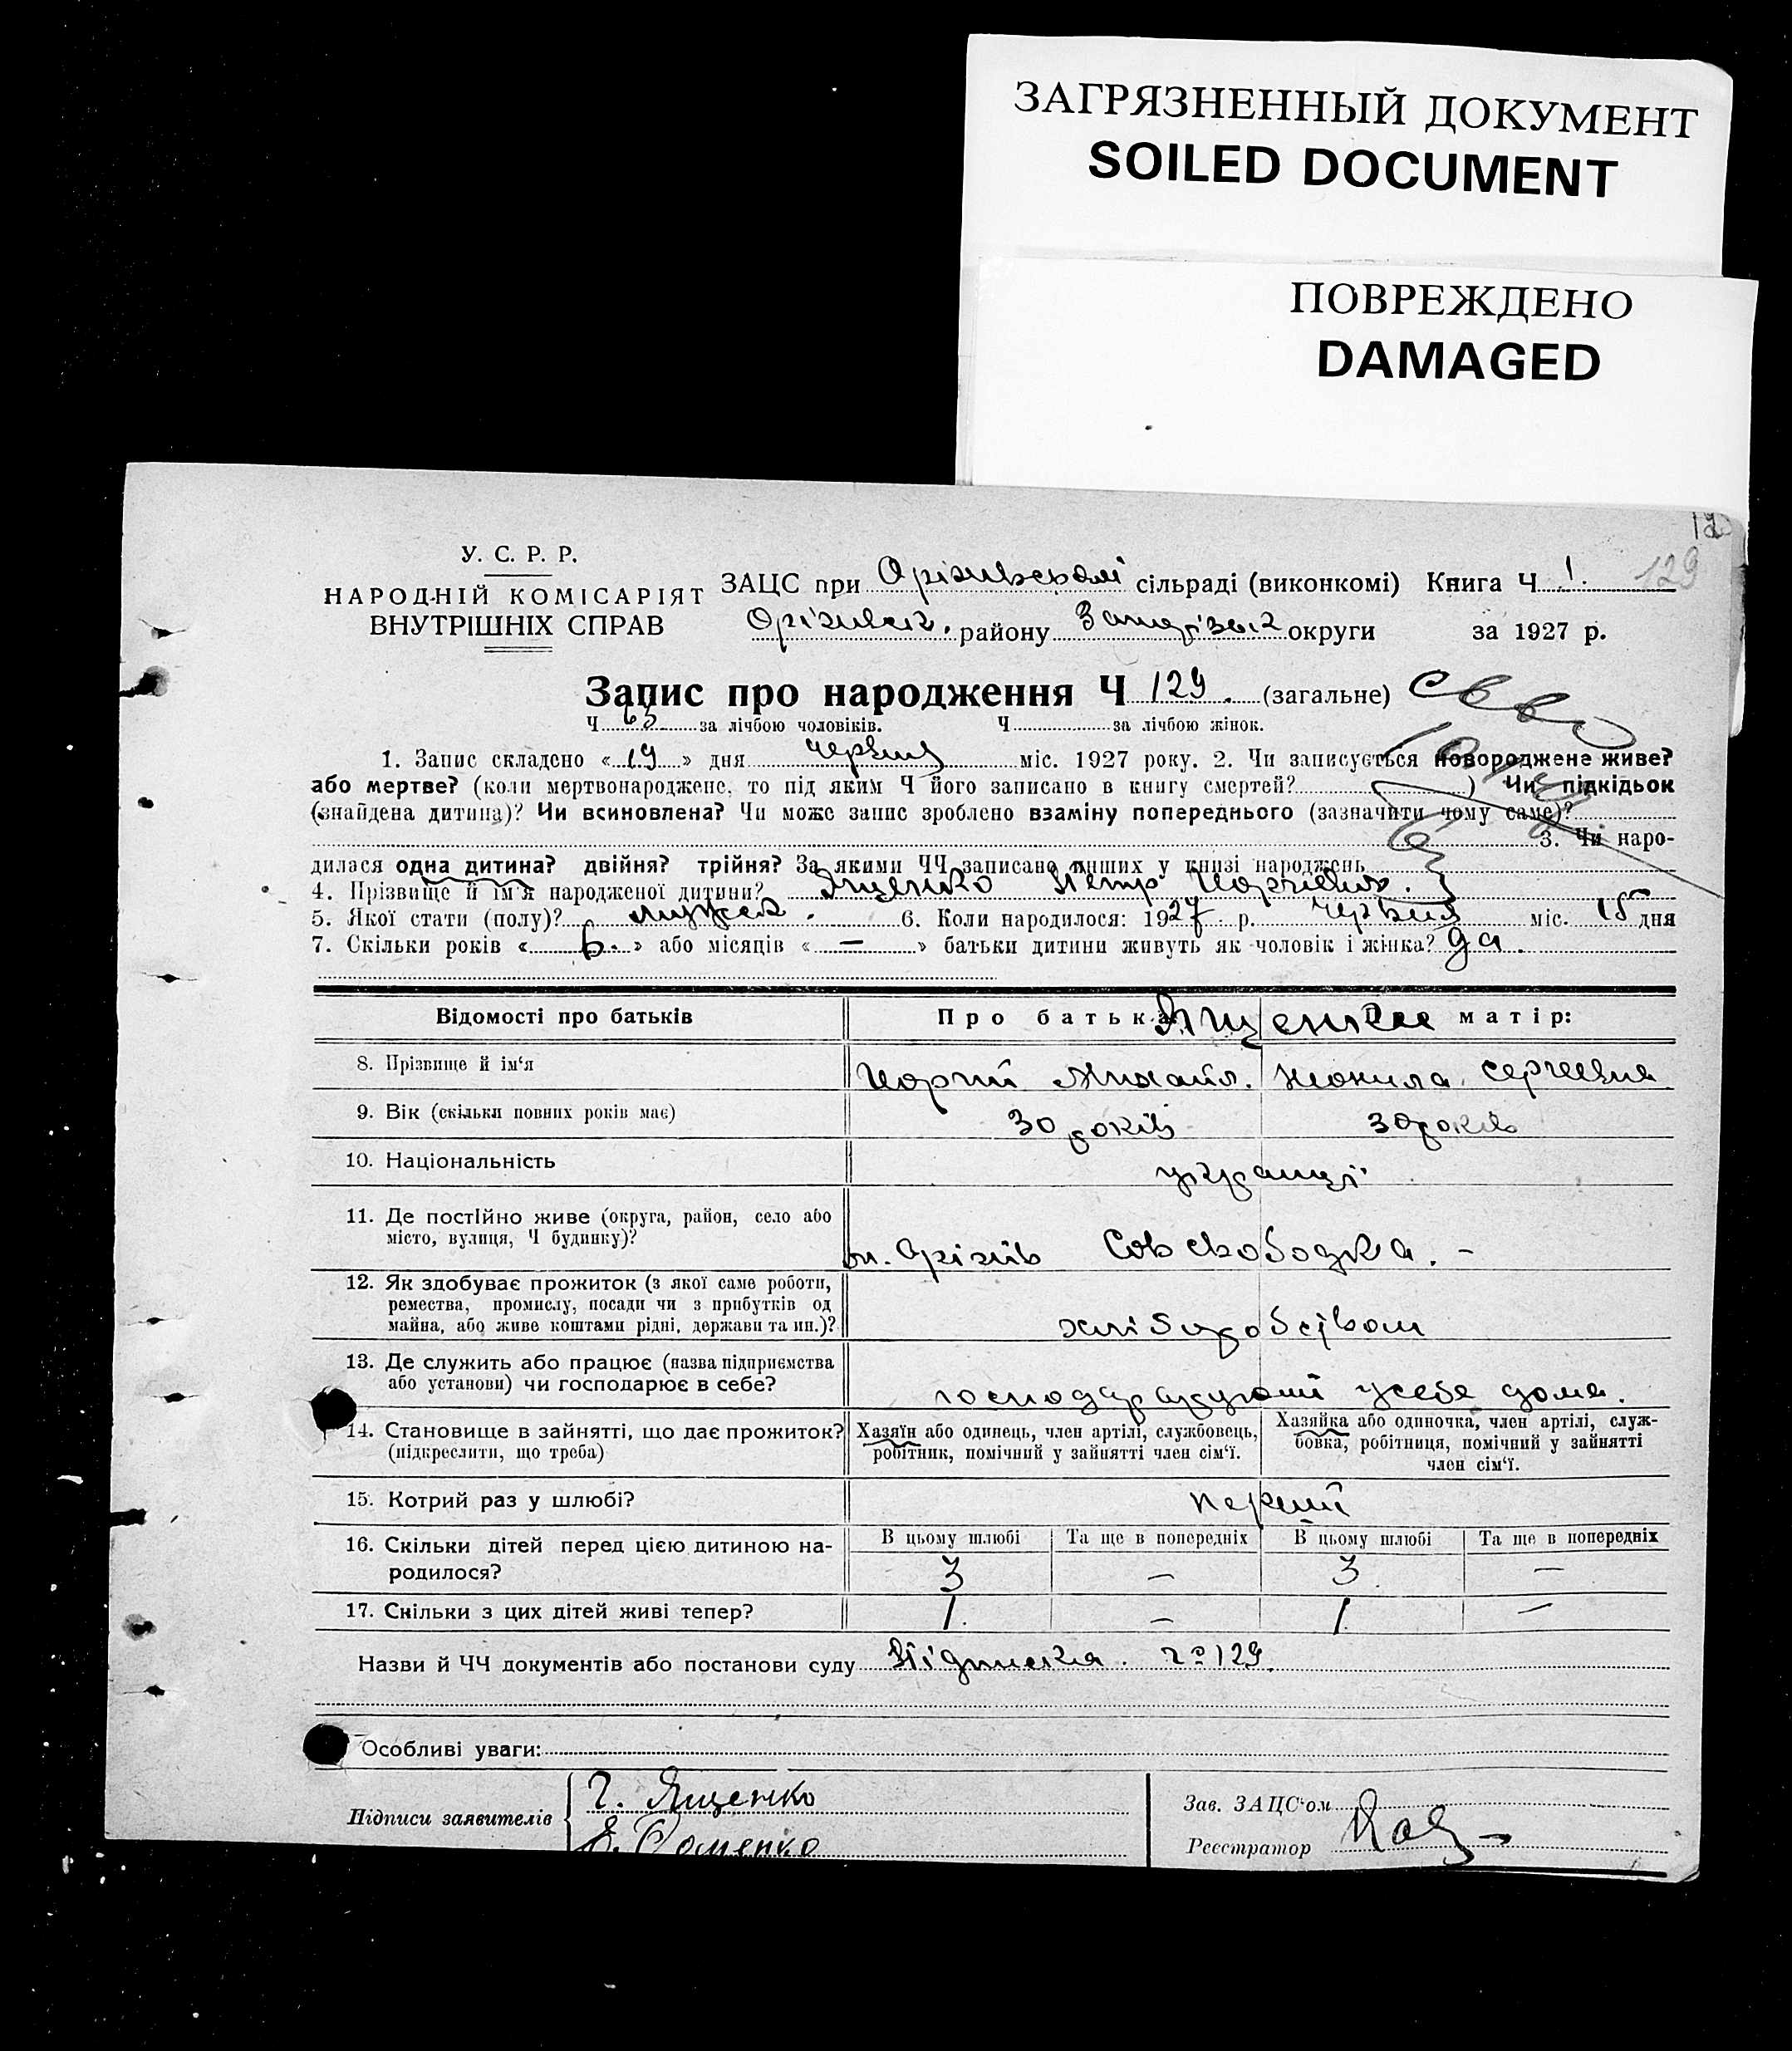 ЗАГРЯЗНЕННЫЙ ДОКУМЕНТ
SOILED DOCUMENT
ПОВРЕЖДЕНО
DAMAGED
129
У. С. Р. Р.
НАРОДНІЙ КОМІСАРІЯТ
ВНУТРІШНІХ СПРАВ
ЗАЦС при Оріхівській сільраді (виконкомі) Книга Ч 1.
Оріхівськ. району Запорізьк округи за 1927 р.
Запис про народження Ч 129. (загальне)
Ч 63 за лічбою чоловіків. Ч за лічбою жінок.
1. Запис складено «19» дня червня міс. 1927 року. 2. Чи записується новороджене живе?
або мертве? (коли мертвонароджене, то під яким Ч його записано в книгу смертей? ) Чи підкідьок
(знайдена дитина)? Чи всиновлена? Чи може запис зроблено взаміну попереднього (зазначити чому саме)?
3. Чи наро-
дилася одна дитина? двійня? трійня? За якими ЧЧ записано инших у книзі народжень
4. Прізвище й ім'я народженої дитини? Ященко Петр
5. Якої стати (полу)? мужск. 6. Коли народилося: 1927 р. червня міс. 15 дня
7. Скільки років «6.» або місяців «—» батьки дитини живуть як чоловік і жінка? да.
Відомості про батьків
Про батька: Про матір:
Ященки
8. Прізвище й ім'я
Михайл. Сергеевна
9. Вік (скільки повних років має)
30 років 30 років
10. Національність
українці
11. Де постійно живе (округа, район, село або
місто, вулиця, Ч будинку)?
м. Оріхів
12. Як здобуває прожиток (з якої саме роботи,
ремества, промислу, посади чи з прибутків од
майна, або живе коштами рідні, держави та ин.)?
хліборобством
13. Де служить або працює (назва підприємства
або установи) чи господарює в себе?
усебе дома.
14. Становище в зайнятті, що дає прожиток?
(підкреслити, що треба)
Хазяїн або одинець, член артілі, службовець,
робітник, помічний у зайнятті член сім'ї.
Хазяйка або одиночка, член артілі, служ-
бовка, робітниця, помічний у зайнятті
член сім'ї.
15. Котрий раз у шлюбі?
перший
16. Скільки дітей перед цією дитиною на-
родилося?
В цьому шлюбі Та ще в попередніх В цьому шлюбі Та ще в попередніх
3 — 3 —
17. Скільки з цих дітей живі тепер?
1. — 1. —
Назви й ЧЧ документів або постанови суду Підписка. № 129.
Особливі уваги:
Підписи заявителів
Ященко
Зав. ЗАЦС'ом
Реєстратор